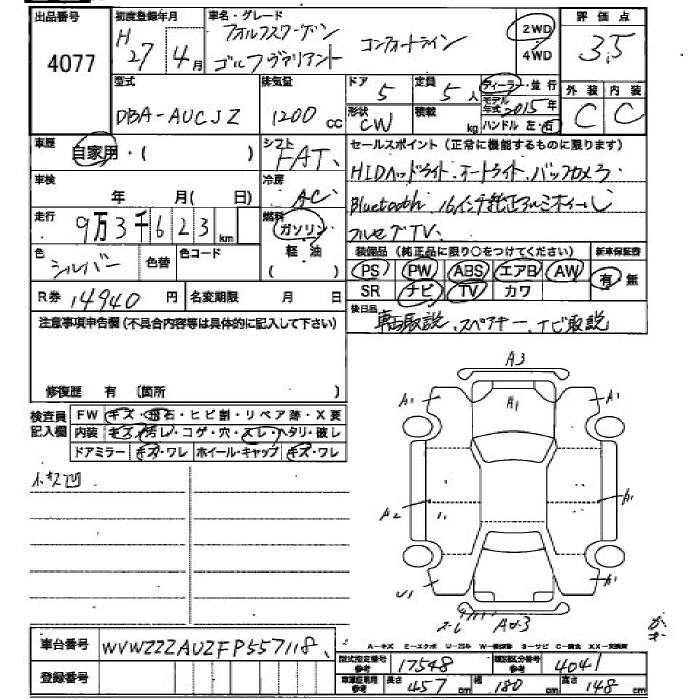 出品番号 初度登録年月 車名・グレード 評価点
4077 H27 4月 フォルフスワーゲン ゴルフヴァリアント コンフォートライン 2WD 4WD 3.5
型式 排気量 ドア 定員 ディーラー・並行 外装 内装
DBA-AUCJZ 1200 cc 5 5人 モデル年式 2015年 C C
形状 CW 積載 kg ハンドル 左・右
車歴 自家用・( ) シフト FAT セールスポイント(正常に機能するものに限ります)
車検 年 月( 日) 冷房 AC HIDヘッドライト、オートライト、バックカメラ
走行 9万3千623km 燃料 ガソリン 軽油 Bluetooth 16インチ純正アルミホイール
フルセグTV、
色 シルバー 色替 色コード 装備品(純正品に限り○をつけてください) 新車保証書
PS PW ABS エアB AW 有・無
R券 14940円 名変期限 月 日 SR ナビ TV カワ
注意事項申告欄(不具合内容等は具体的に記入して下さい) 後日品 取説、スペアキー、ナビ取説
修復歴 有 (箇所 )
検査員記入欄 FW キズ・飛石・ヒビ割・リペア跡・X要
内装 キズ・汚レ・コゲ・穴・スレ・ハタリ・破レ
ドアミラー キズ・ワレ ホイール・キャップ キズ・ワレ
A3
A1 A1 A1
A2 A1
U1 A1
車台番号 WVWZZZAUZFP557118
A-キズ E-エクボ U-凹み W-補修跡 S-サビ C-腐食 XX-交換済
登録番号 型式指定番号 参考 17548 類別区分番号 参考 4041
車庫証明用 参考 長さ 457cm 幅 180cm 高さ 148cm